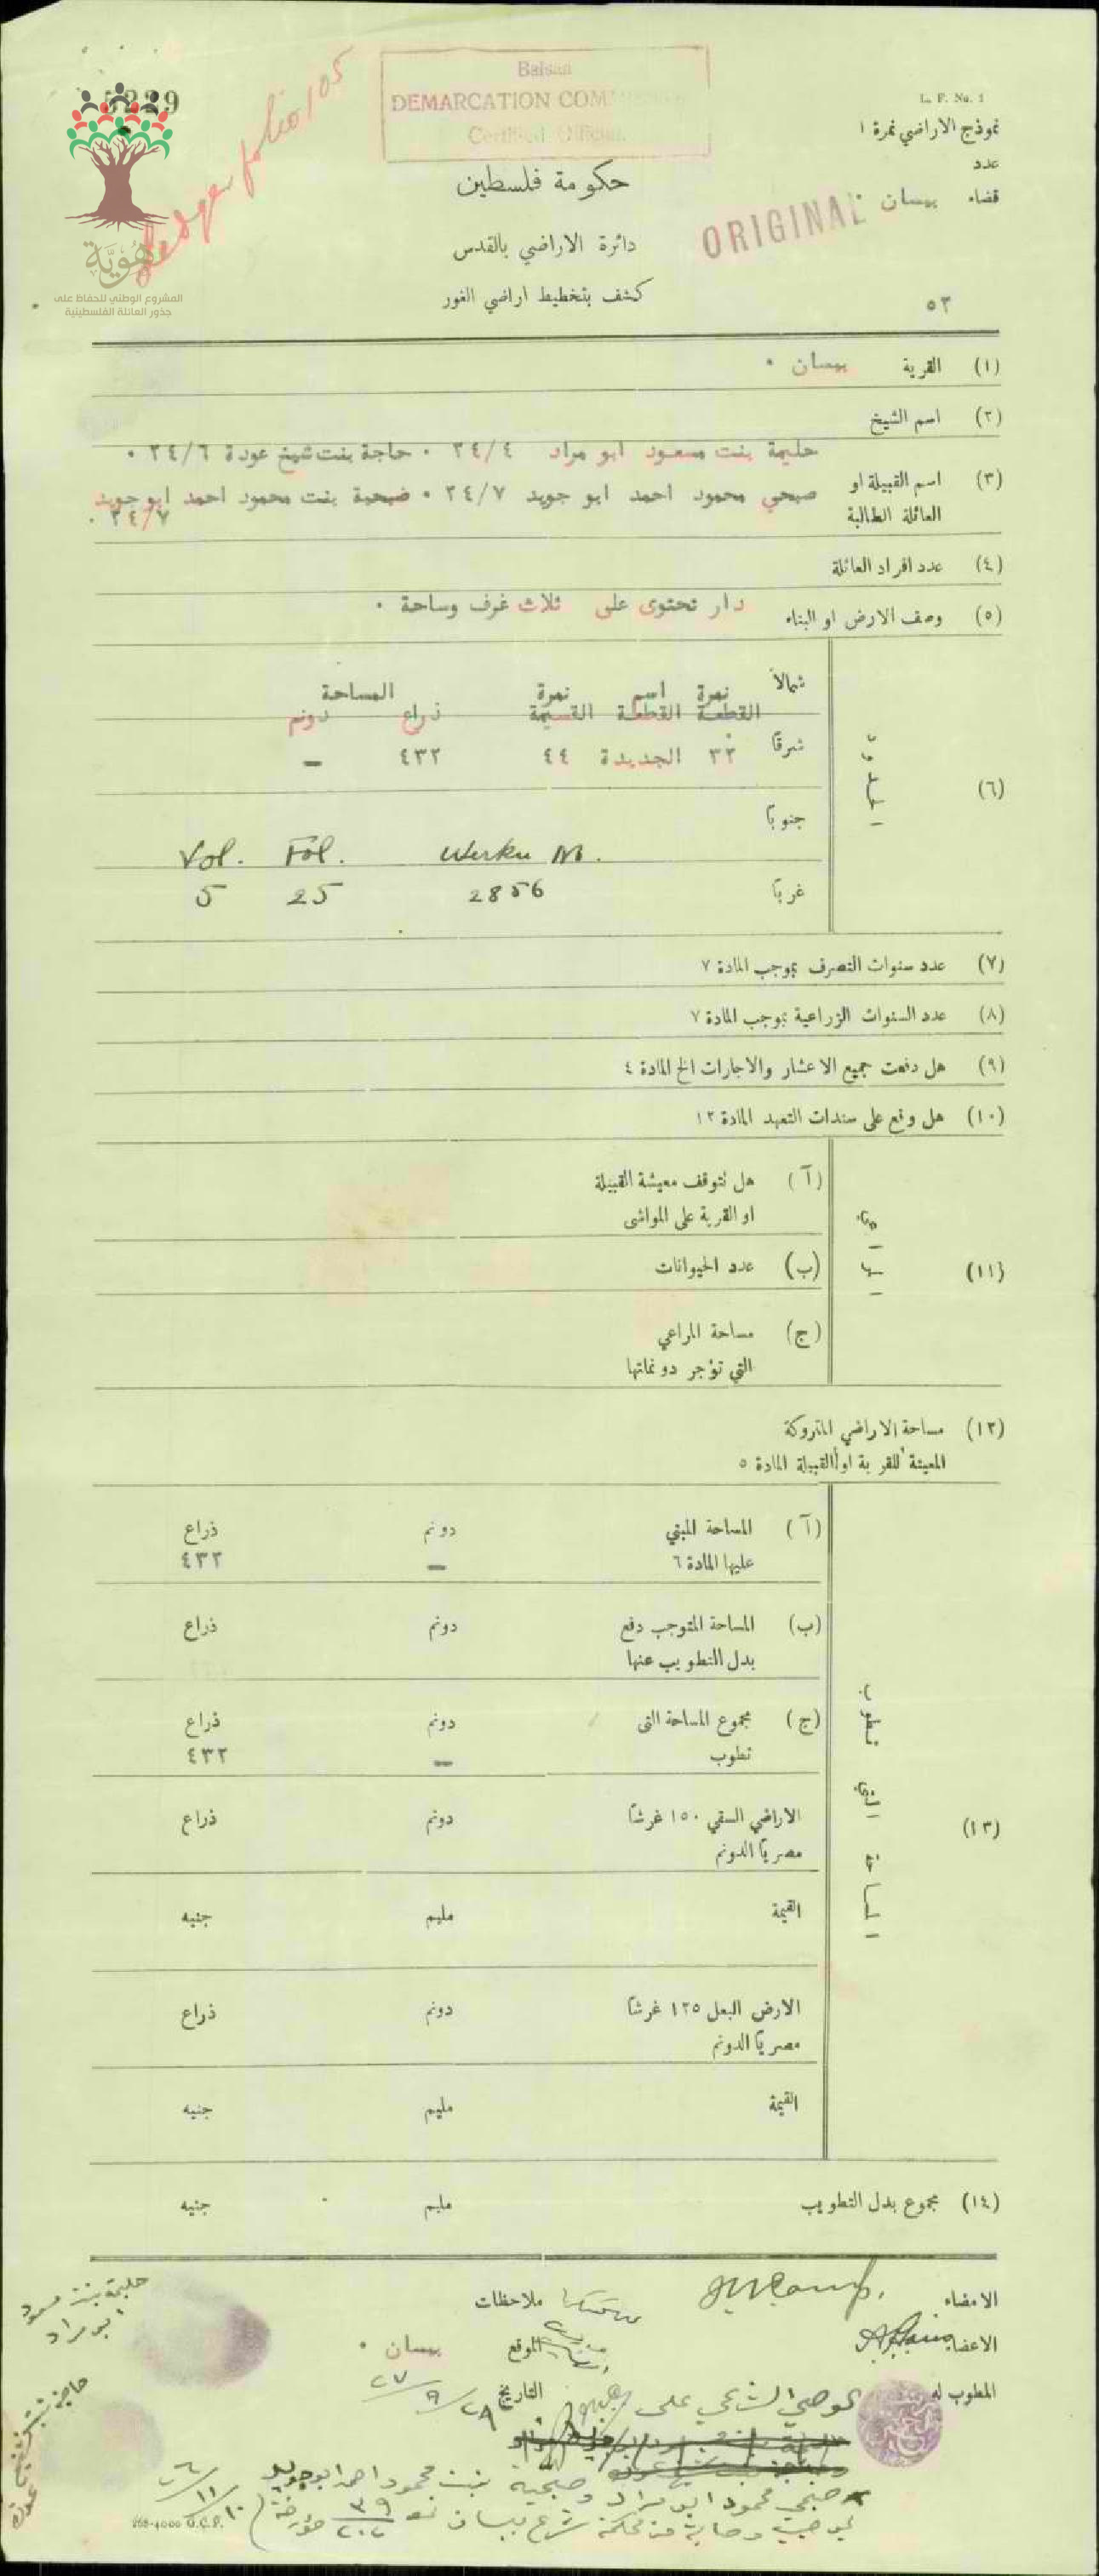 5229
Ledger folio 105
Baisan
DEMARCATION COMMISSION
Certified Official
L. F. No. 1
نموذج الاراضي نمرة ١
عدد
قضاء بيسان
ORIGINAL
حكومة فلسطين
دائرة الاراضي بالقدس
كشف بتخطيط اراضي الغور
٥٣
هُوِيَّة
المشروع الوطني للحفاظ على
جذور العائلة الفلسطينية
(١) القرية بيسان .
(٢) اسم الشيخ
حليمة بنت مسعود ابو مراد ٢٤/٤ . حاجة بنت شيخ عودة ٢٤/٦ .
(٣) اسم القبيلة او العائلة الطالبة
صبحي محمود احمد ابو جويد ٢٤/٧ . ضبحية بنت محمود احمد ابو جويد ٢٤/٧ .
(٤) عدد افراد العائلة
(٥) وصف الارض او البناء دار تحتوى على ثلاث غرف وساحة .
(٦) الحدود
شمالاً
نمرة القطعة اسم القطعة نمرة القسيمة المساحة ذراع دونم
شرقاً ٣٢ الجديدة ٤٤ ٤٣٢ —
جنوباً
Vol. Fol. Werku No.
غرباً
5 25 2856
(٧) عدد سنوات التصرف بموجب المادة ٧
(٨) عدد السنوات الزراعية بموجب المادة ٧
(٩) هل دفعت جميع الاعشار والاجارات الخ المادة ٤
(١٠) هل وقع على سندات التعهد المادة ١٢
(١١)
(آ) هل تتوقف معيشة القبيلة
او القرية على المواشى
(ب) عدد الحيوانات
(ج) مساحة المراعي
التي تؤجر دونماتها
(١٢) مساحة الاراضي المتروكة
المعينة للقرية او القبيلة المادة ٥
(١٣) المساحة التي تطوب
(آ) المساحة المبني دونم ذراع
عليها المادة ٦ — ٤٣٢
(ب) المساحة المتوجب دفع دونم ذراع
بدل التطويب عنها
(ج) مجموع المساحة التى دونم ذراع
تطوب — ٤٣٢
الاراضي السقي ١٥٠ غرشاً دونم ذراع
مصرياً الدونم
القيمة مليم جنيه
الارض البعل ١٢٥ غرشاً دونم ذراع
مصرياً الدونم
القيمة مليم جنيه
(١٤) مجموع بدل التطويب مليم جنيه
الامضاء
ملاحظات
حليمة بنت مسعود
ابو مراد
الاعضاء
الموقع بيسان .
المطلوب له
التاريخ ٢٧/٩/٢٨
الوصي الشرعي على
صبحي محمود ابو مراد وصبحية بنت محمود احمد ابو جويد
بموجب وصاية من محكمة شرع بيسان
268-4000 G.C.P.